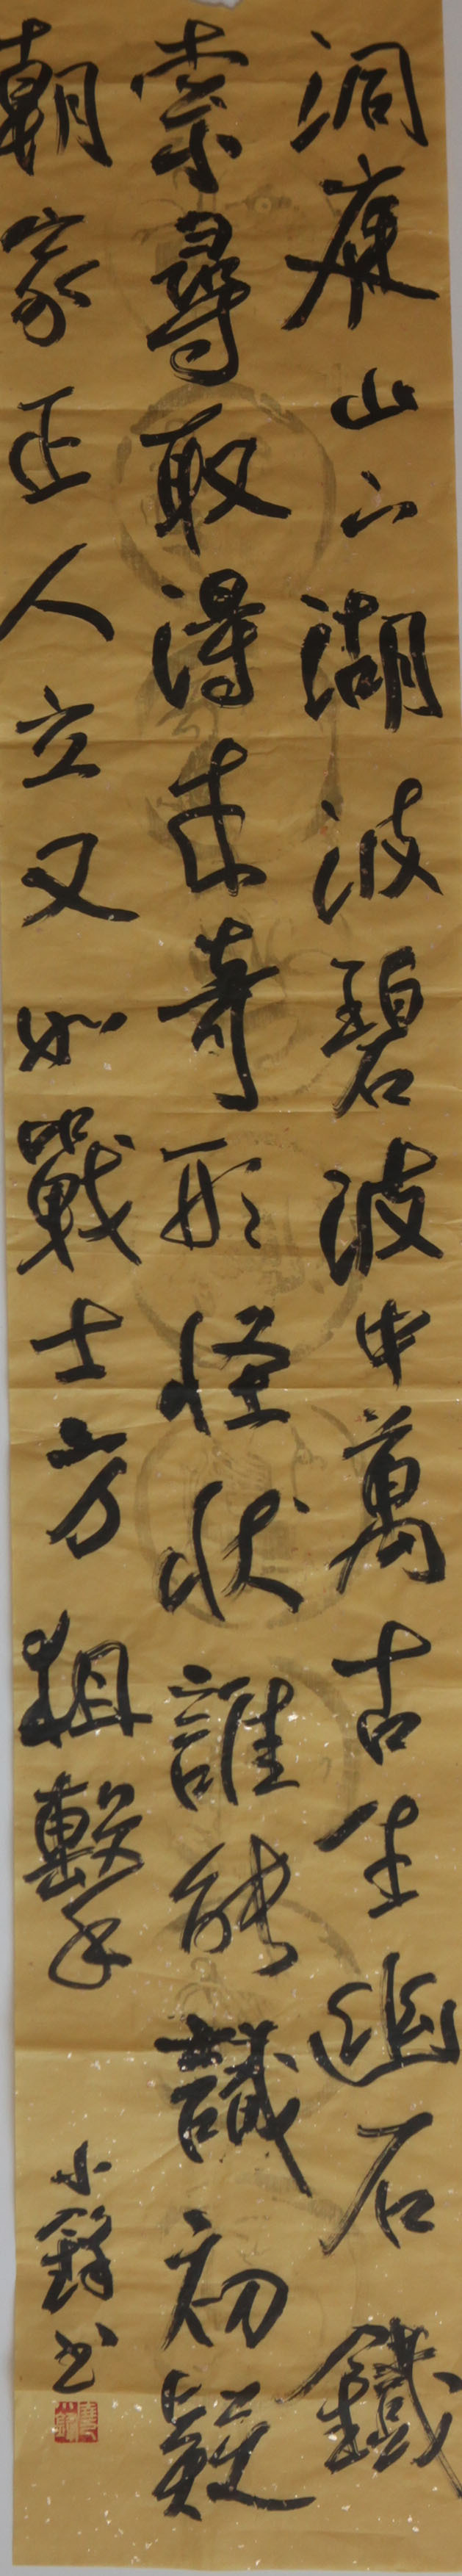 洞庭山下湖波碧波中萬古生幽石鐵
索尋取得來奇形怪狀誰能識初疑
朝家正人立又如戰士方狙擊
小鋒书